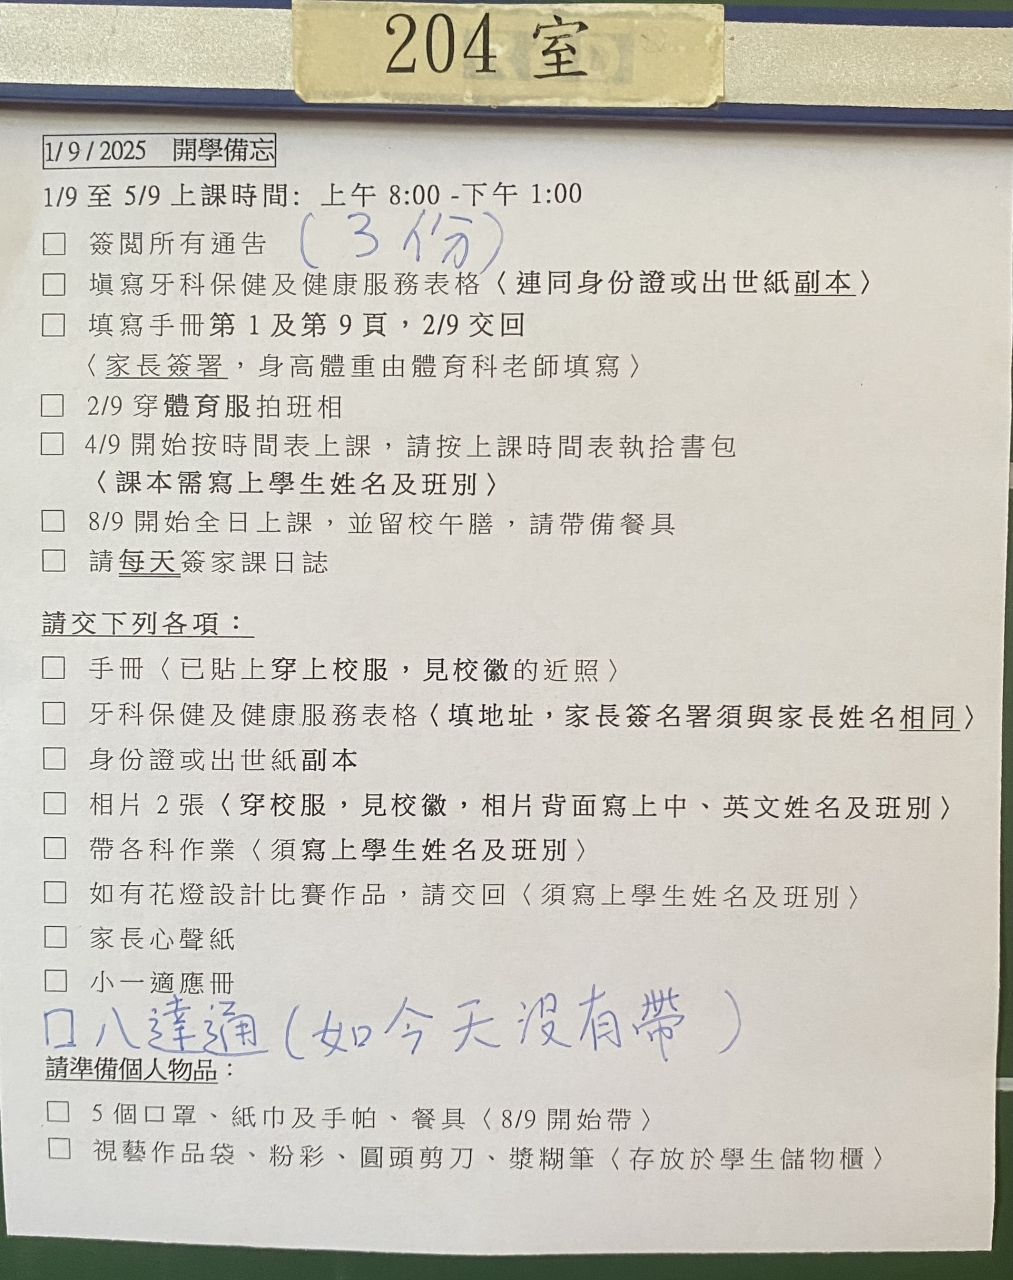 204 室
1/9/2025 開學備忘
1/9 至 5/9 上課時間: 上午 8:00 -下午 1:00
□ 簽閱所有通告 (3份)
□ 填寫牙科保健及健康服務表格〈連同身份證或出世紙副本〉
□ 填寫手冊第 1 及第 9 頁，2/9 交回
〈家長簽署，身高體重由體育科老師填寫〉
□ 2/9 穿體育服拍班相
□ 4/9 開始按時間表上課，請按上課時間表執拾書包
〈課本需寫上學生姓名及班別〉
□ 8/9 開始全日上課，並留校午膳，請帶備餐具
□ 請每天簽家課日誌
請交下列各項：
□ 手冊〈已貼上穿上校服，見校徽的近照〉
□ 牙科保健及健康服務表格〈填地址，家長簽名署須與家長姓名相同〉
□ 身份證或出世紙副本
□ 相片 2 張〈穿校服，見校徽，相片背面寫上中、英文姓名及班別〉
□ 帶各科作業〈須寫上學生姓名及班別〉
□ 如有花燈設計比賽作品，請交回〈須寫上學生姓名及班別〉
□ 家長心聲紙
□ 小一適應冊
□ 八達通 (如今天沒有帶)
請準備個人物品：
□ 5 個口罩、紙巾及手帕、餐具〈8/9 開始帶〉
□ 視藝作品袋、粉彩、圓頭剪刀、漿糊筆〈存放於學生儲物櫃〉